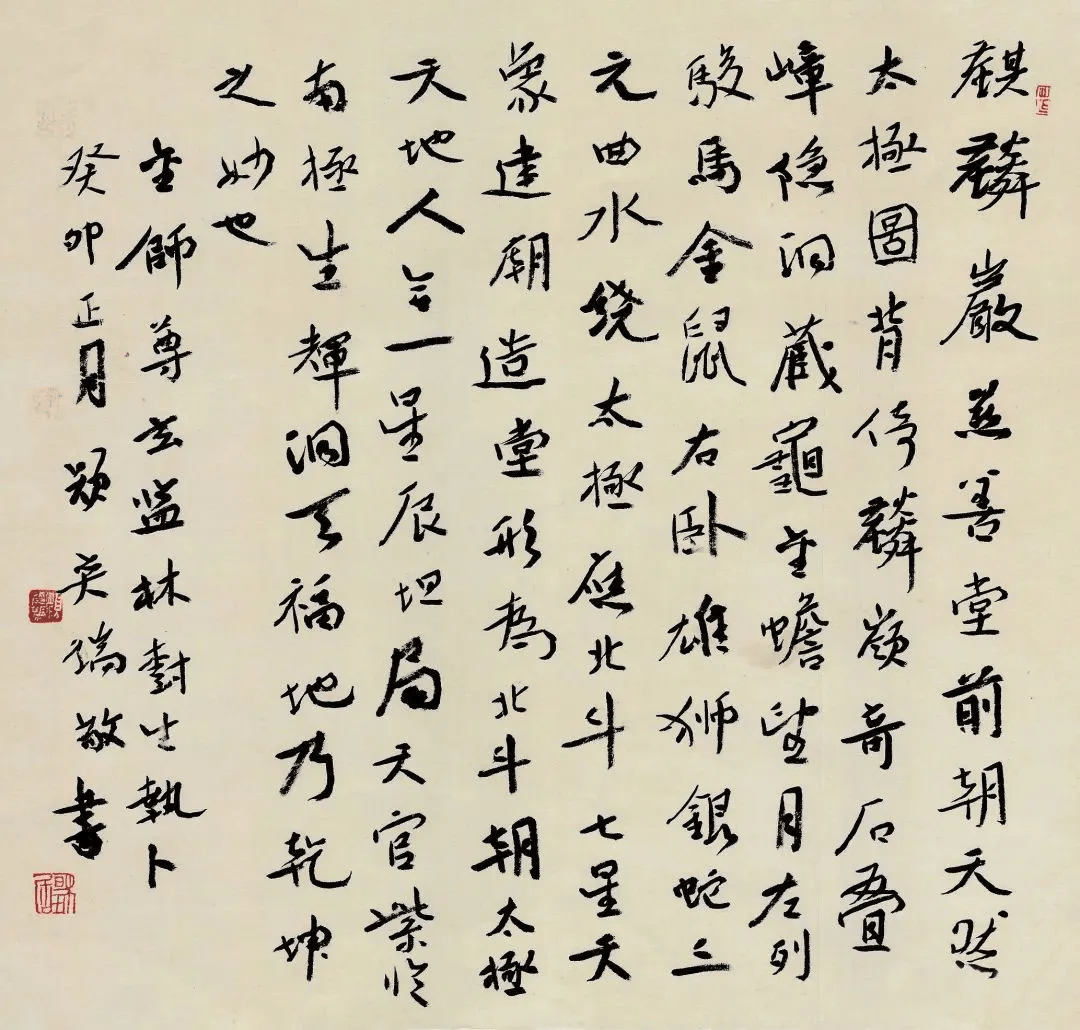 麒麟巖慈善堂前朝天然
太極圖背倚麟嶺奇石疊
嶂隐洞藏龜金蟾望月左列
駿馬金鼠右卧雄獅銀蛇三
元曲水绕太極應北斗七星天
象建廟造堂形為北斗朝太極
天地人合一星辰坦局天官紫
南極生輝洞天福地乃乾坤
之妙也
師尊玄监林對執卜
癸卯正月 敬書